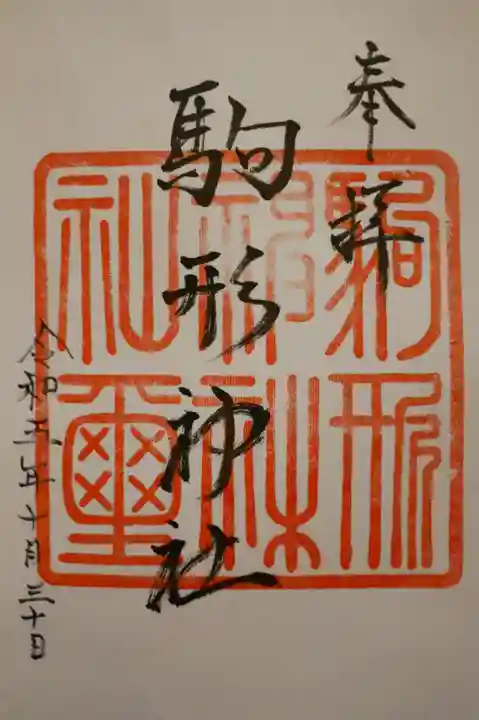 奉拝
駒形神社
令和五年十月三十日
駒形
神社
社璽